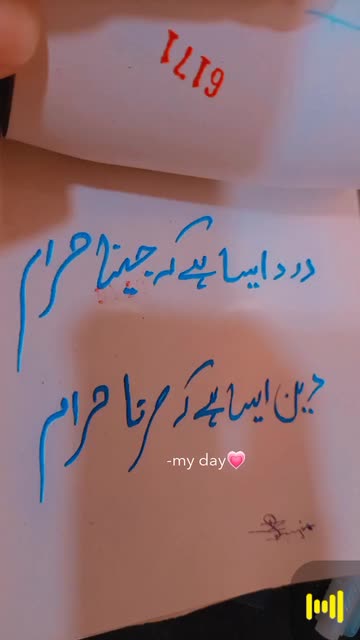 6171
درد ایسا ہے کہ جینا حرام
دین ایسا ہے کہ مرنا حرام
-my day💗